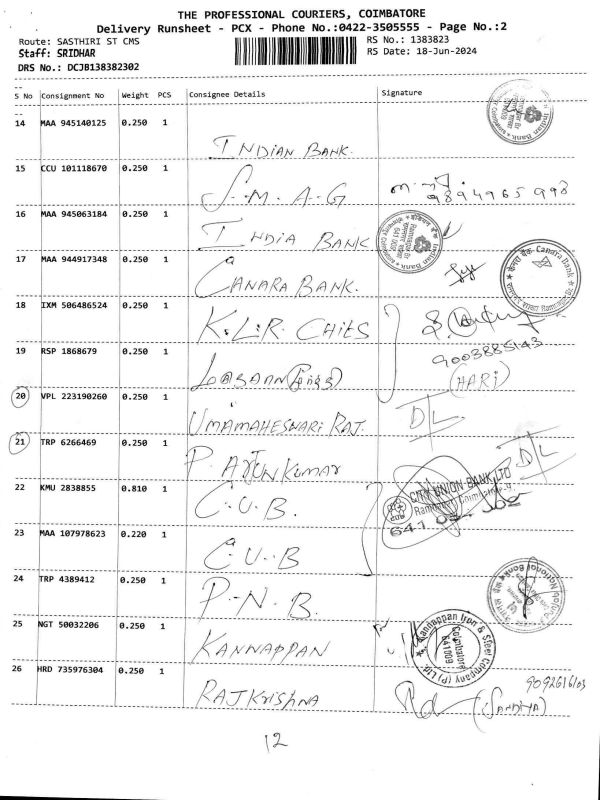 THE PROFESSIONAL COURIERS, COIMBATORE
Delivery Runsheet - PCX - Phone No.:0422-3505555 - Page No.:2
Route: SASTHIRI ST CMS
RS No.: 1383823
Staff: SRIDHAR
RS Date: 18-Jun-2024
DRS No.: DCJB138382302
S No Consignment No Weight PCS Consignee Details Signature
14 MAA 945140125 0.250 1
INDIAN BANK.
15 CCU 101118670 0.250 1
S.M.A.G 9894965998
16 MAA 945063184 0.250 1
INDIA BANK
Indian Bank
17 MAA 944917348 0.250 1
CANARA BANK.
Canara Bank
18 IXM 506486524 0.250 1
K.L.R. CHitS
19 RSP 1868679 0.250 1
9003885143
(HARI)
20 VPL 223190260 0.250 1
UMAMAHESWARi RAJ. D/L
21 TRP 6266469 0.250 1
P. ARJUNKUMAR D/L
22 KMU 2838855 0.810 1
C.U.B.
CITY UNION BANK LTD
23 MAA 107978623 0.220 1
C.U.B
24 TRP 4389412 0.250 1
P.N.B.
25 NGT 50032206 0.250 1
KANNAPPAN
Kannappan Iron & Steel Company (P) Ltd.
Coimbatore
641009
26 HRD 735976304 0.250 1
RAJKrishNA (SANDHYA)
12